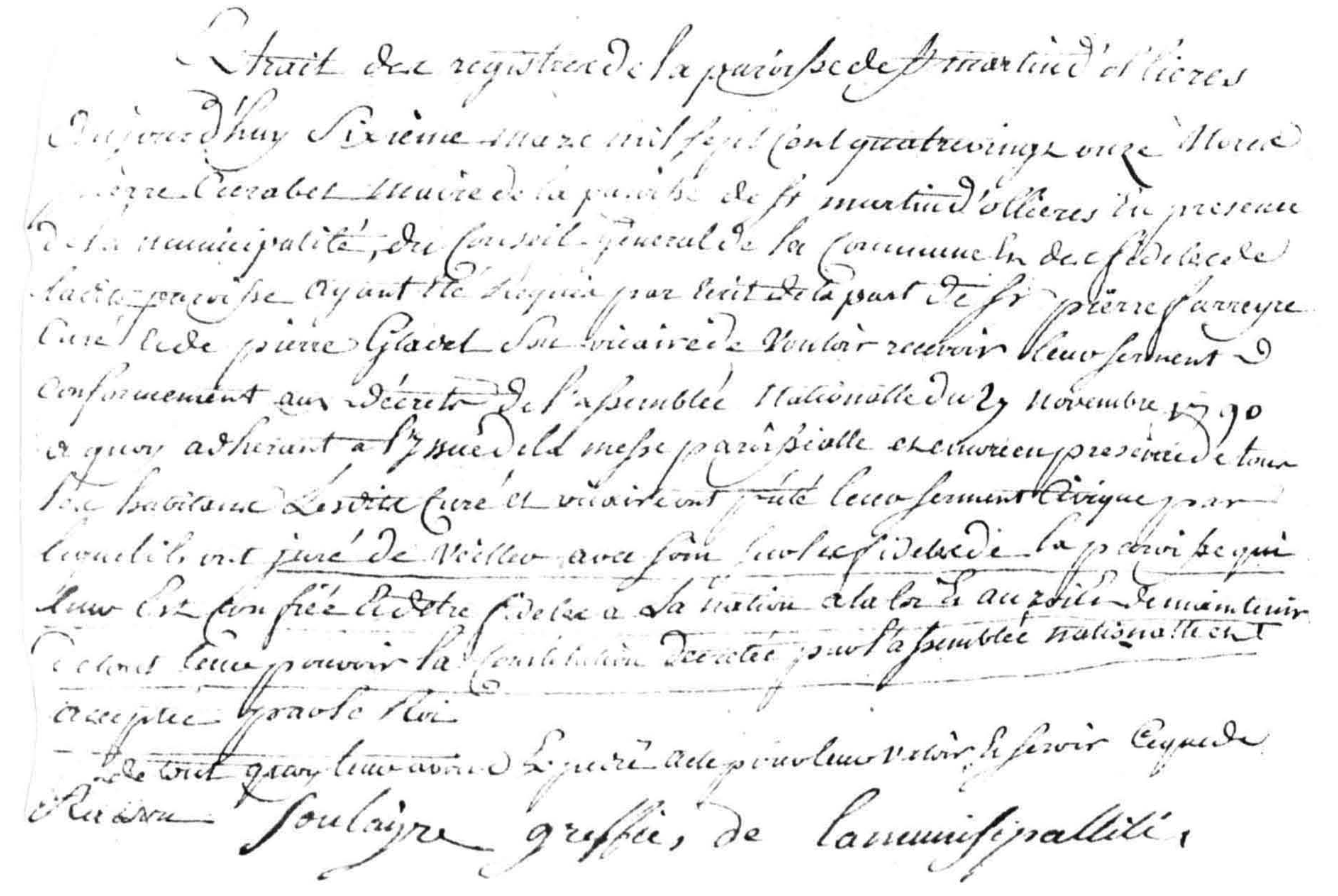 Extrait des registres de la paroisse de st martin d'ollieres
Aujourd'huy Sixième mars mil sept cent quatrevingt onze Nous
pierre Curabet Maire de la paroisse de st martin d'ollieres En presence
de la municipalité, du Conseil General de la Commune Et des fideles de
ladite paroisse Ayant Eté Requis par Ecrit de la part de sr pierre farreyre
Curé Et de pierre Glavel Son vicaire de Vouloir recevoir leur serment
conformement aux décrets de l'assemblée Nationalle du 27 novembre 1790
a quoy adherant a l'yssue de la messe paroissialle et encore en presence de tous
les habitans Lesdits Curé et vicaire ont prêté leur serment Civique par
lequel ils ont juré de Veiller avec soin sur les fideles de la paroisse qui
leur Est confiée Et d'être fideles a La nation a la loi Et au roi Et de maintenir
de tout leur pouvoir la Constitution Decretée par l'assemblée nationalle et
acceptée par le Roi
de tout quoy leur avons Expedié acte pour leur valoir Et servir Ce que de
Raison Soulayre greffier de la munisipallité